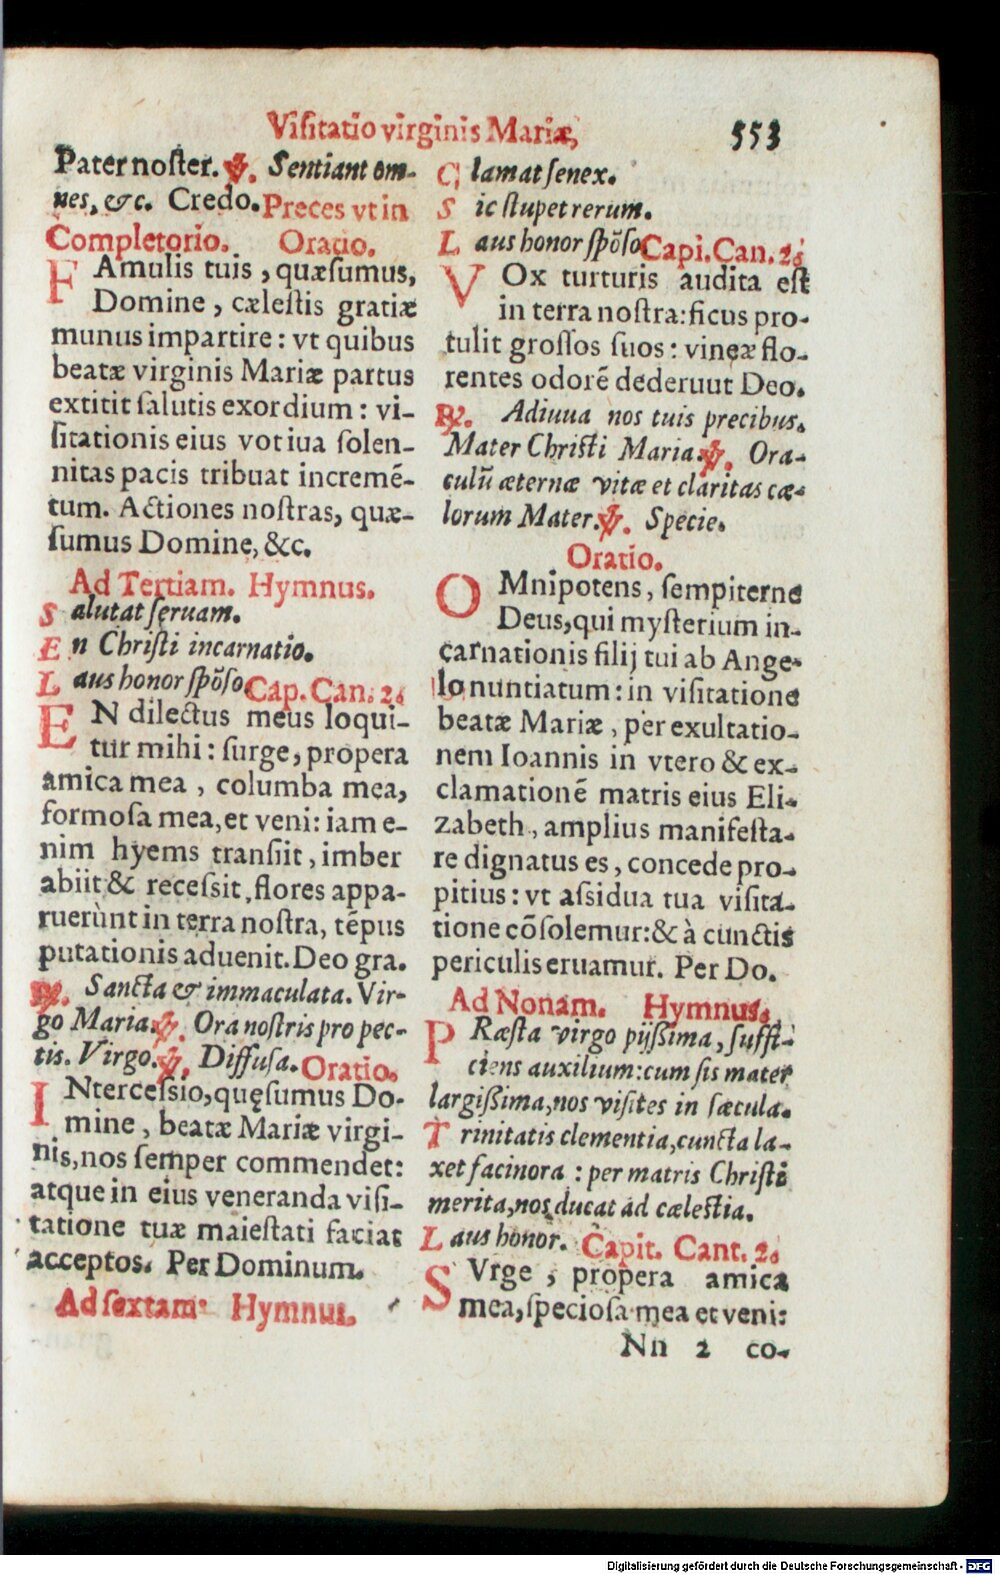 Visitatio virginis Mariæ, 553
Pater noſter. ℣. Sentiant om-
nes, &c. Credo. Preces vt in
Completorio. Oratio.
FAmulis tuis, quæſumus,
Domine, cæleſtis gratiæ
munus impartire: vt quibus
beatæ virginis Mariæ partus
extitit ſalutis exordium: vi-
ſitationis eius votiua ſolen-
nitas pacis tribuat incremē-
tum. Actiones noſtras, quæ-
ſumus Domine, &c.
Ad Tertiam. Hymnus.
Salutat ſeruam.
En Chriſti incarnatio.
Laus honor ſpōſo Cap. Can. 2.
EN dilectus meus loqui-
tur mihi: ſurge, propera
amica mea, columba mea,
formoſa mea, et veni: iam e-
nim hyems tranſiit, imber
abiit & receſsit, flores appa-
ruerùnt in terra noſtra, tēpus
putationis aduenit. Deo gra.
℟. Sancta & immaculata. Vir-
go Maria. ℣. Ora noſtris pro pec-
tis. Virgo. ℣. Diffuſa. Oratio.
INterceſsio, quęſumus Do-
mine, beatæ Mariæ virgi-
nis, nos ſemper commendet:
atque in eius veneranda viſi-
tatione tuæ maieſtati faciat
acceptos. Per Dominum.
Ad ſextam. Hymnus.
Clamat ſenex.
Sic ſtupet rerum.
Laus honor ſpōſo Capi. Can. 2.
VOx turturis audita eſt
in terra noſtra: ficus pro-
tulit groſſos ſuos: vineæ flo-
rentes odorē dederuut Deo.
℟. Adiuua nos tuis precibus.
Mater Chriſti Maria. ℣. Ora-
culū æternæ vitæ et claritas cæ-
lorum Mater. ℣. Specie.
Oratio.
OMnipotens, ſempiterne
Deus, qui myſterium in-
carnationis filij tui ab Ange-
lo nuntiatum: in viſitatione
beatæ Mariæ, per exultatio-
nem Ioannis in vtero & ex-
clamationē matris eius Eli-
zabeth, amplius manifeſta-
re dignatus es, concede pro-
pitius: vt aſsidua tua viſita-
tione cōſolemur: & à cunctis
periculis eruamur. Per Do.
Ad Nonam. Hymnus.
PRæſta virgo pijßima, ſuffi-
ciens auxilium: cum ſis mater
largißima, nos viſites in ſæcula.
Trinitatis clementia, cuncta la-
xet facinora: per matris Chriſti
merita, nos ducat ad cæleſtia.
Laus honor. Capit. Cant. 2.
SVrge, propera amica
mea, ſpecioſa mea et veni:
Nn 2 co-
Digitalisierung gefördert durch die Deutsche Forschungsgemeinschaft - DFG